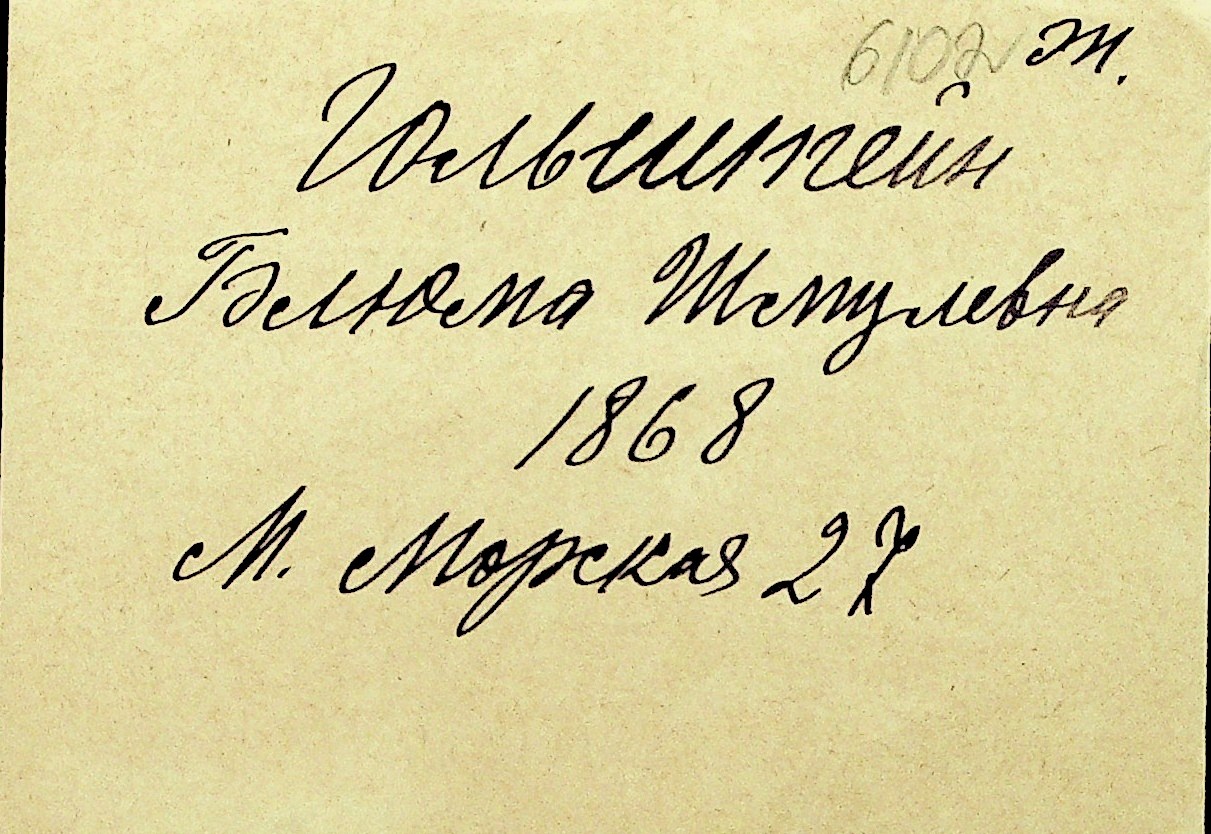 6102 ж.
Гольштейн
Блюма Шмулевна
1868
М. Морская 27